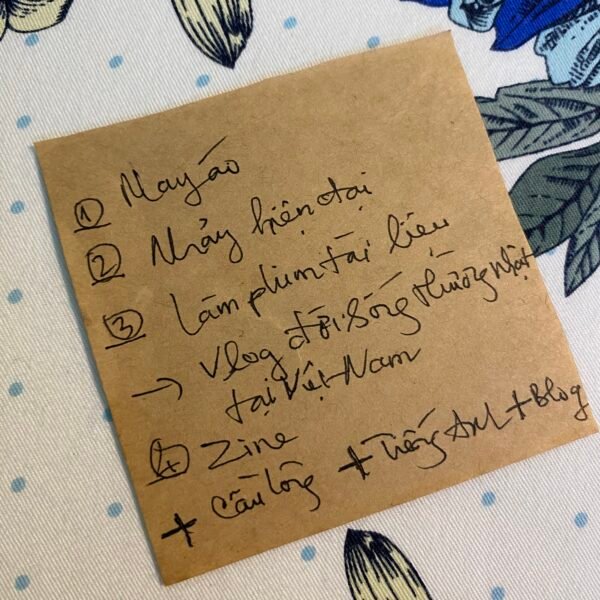 ① May áo
② Nhảy hiện đại
③ Làm phim tài liệu
→ Vlog đời sống thường nhật
tại Việt Nam
④ Zine
+ Cầu lông + Tiếng Anh + Blog